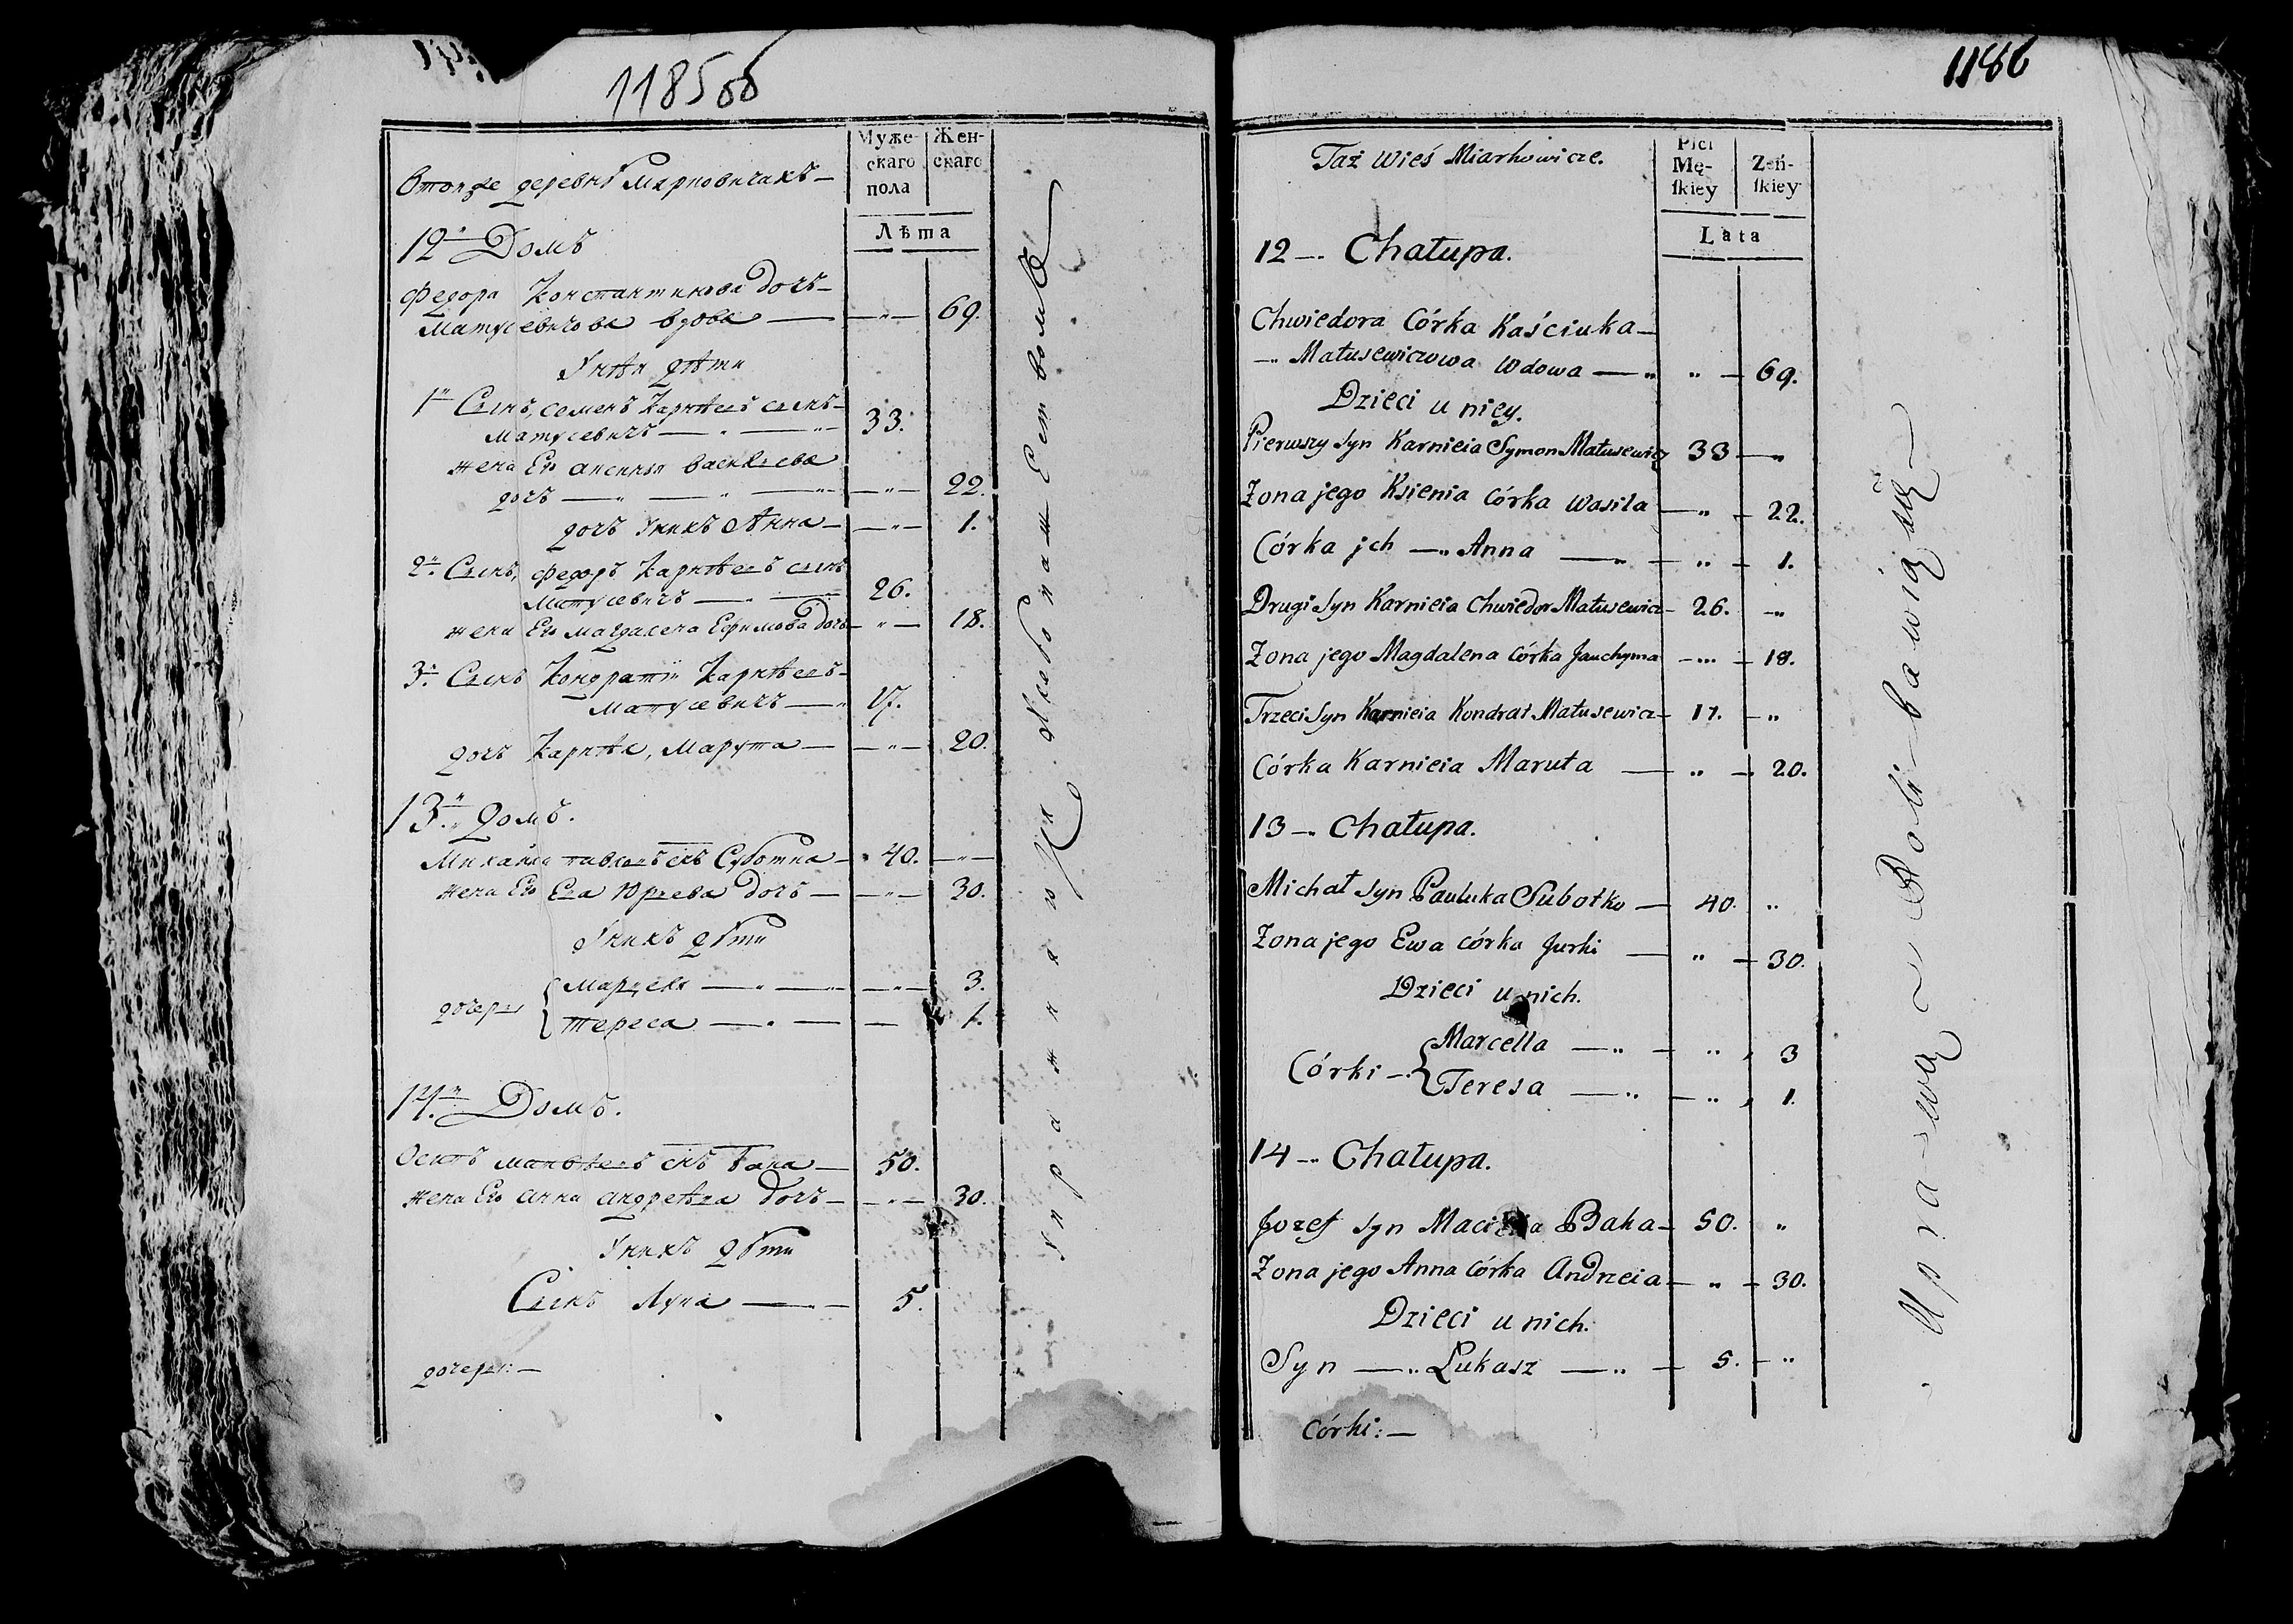 1185об
Муже-
скаго
пола
Жен-
скаго
Лѣта
Втойже деревнѣ Мярковичахъ —
12й Домъ
Федора Константинова дочь —
Матусевичова вдова — " — 69.
У нѣи дѣти
1й Сынъ, Семенъ Карнѣевъ сынъ —
Матусевичъ — " — 33.
жена Его Аксинья Васильева
дочь — " — 22.
дочь у нихъ Анна — " — 1.
2й Сынъ, Федоръ Карнѣевъ сынъ
Матусевичъ — 26.
жена Его Магдалена Ефимова дочь — " — 18.
3й Сынъ Кондратiй Карнѣевъ —
Матусевичъ — 17.
дочь Карнѣя, Марута — " — 20.
13й домъ.
Михайла павловъ снъ Суботка — 40. — " —
жена Его Ева Юрьева дочь — " — 30.
У нихъ дѣти
дочери
Марцеля — " — 3.
Тереса — " — 1.
14й Домъ.
Осипъ матвѣевъ снъ Бака — 50.
жена Его Анна андрѣева дочь — " — 30.
У нихъ дѣти
Сынъ Лука — " — 5.
дочери: —
Упражняются Хлебопашествомъ
1186
Płci
Mę-
skiey
Żeń-
skiey
Lata
Taż Wieś Miarkowicze.
12 — Chałupa.
Chwiedora Córka Kaściuka —
— " Matusewiczowa Wdowa — " " — 69.
Dzieci u niey.
Pierwszy Syn Karnieia Symon Matusewicz 33 — "
Zona jego Ksienia Córka Wasila — " — 22.
Córka jch — " Anna — " — " — 1.
Drugi Syn Karnieia Chwiedor Matusewicz — 26. — "
Zona jego Magdalena Córka Jauchyma — " — 18.
Trzeci Syn Karnieia Kondrat Matusewicz — 17. — "
Córka Karnieia Maruta — " — 20.
13 — Chałupa.
Michał Syn Pauluka Subotko — 40. "
Zona jego Ewa córka Jurki — " — 30.
Dzieci u nich.
Córki —
Marcella — " — " 3
Teresa — " — " 1.
14 — Chałupa.
Jozef Syn Macieia Baka — 50. "
Zona jego Anna Córka Andrzeia — " — 30.
Dzieci u nich.
Syn — " Łukasz — " — 5. — "
Córki: —
Upra-wą ~ Roli-bawią się ~